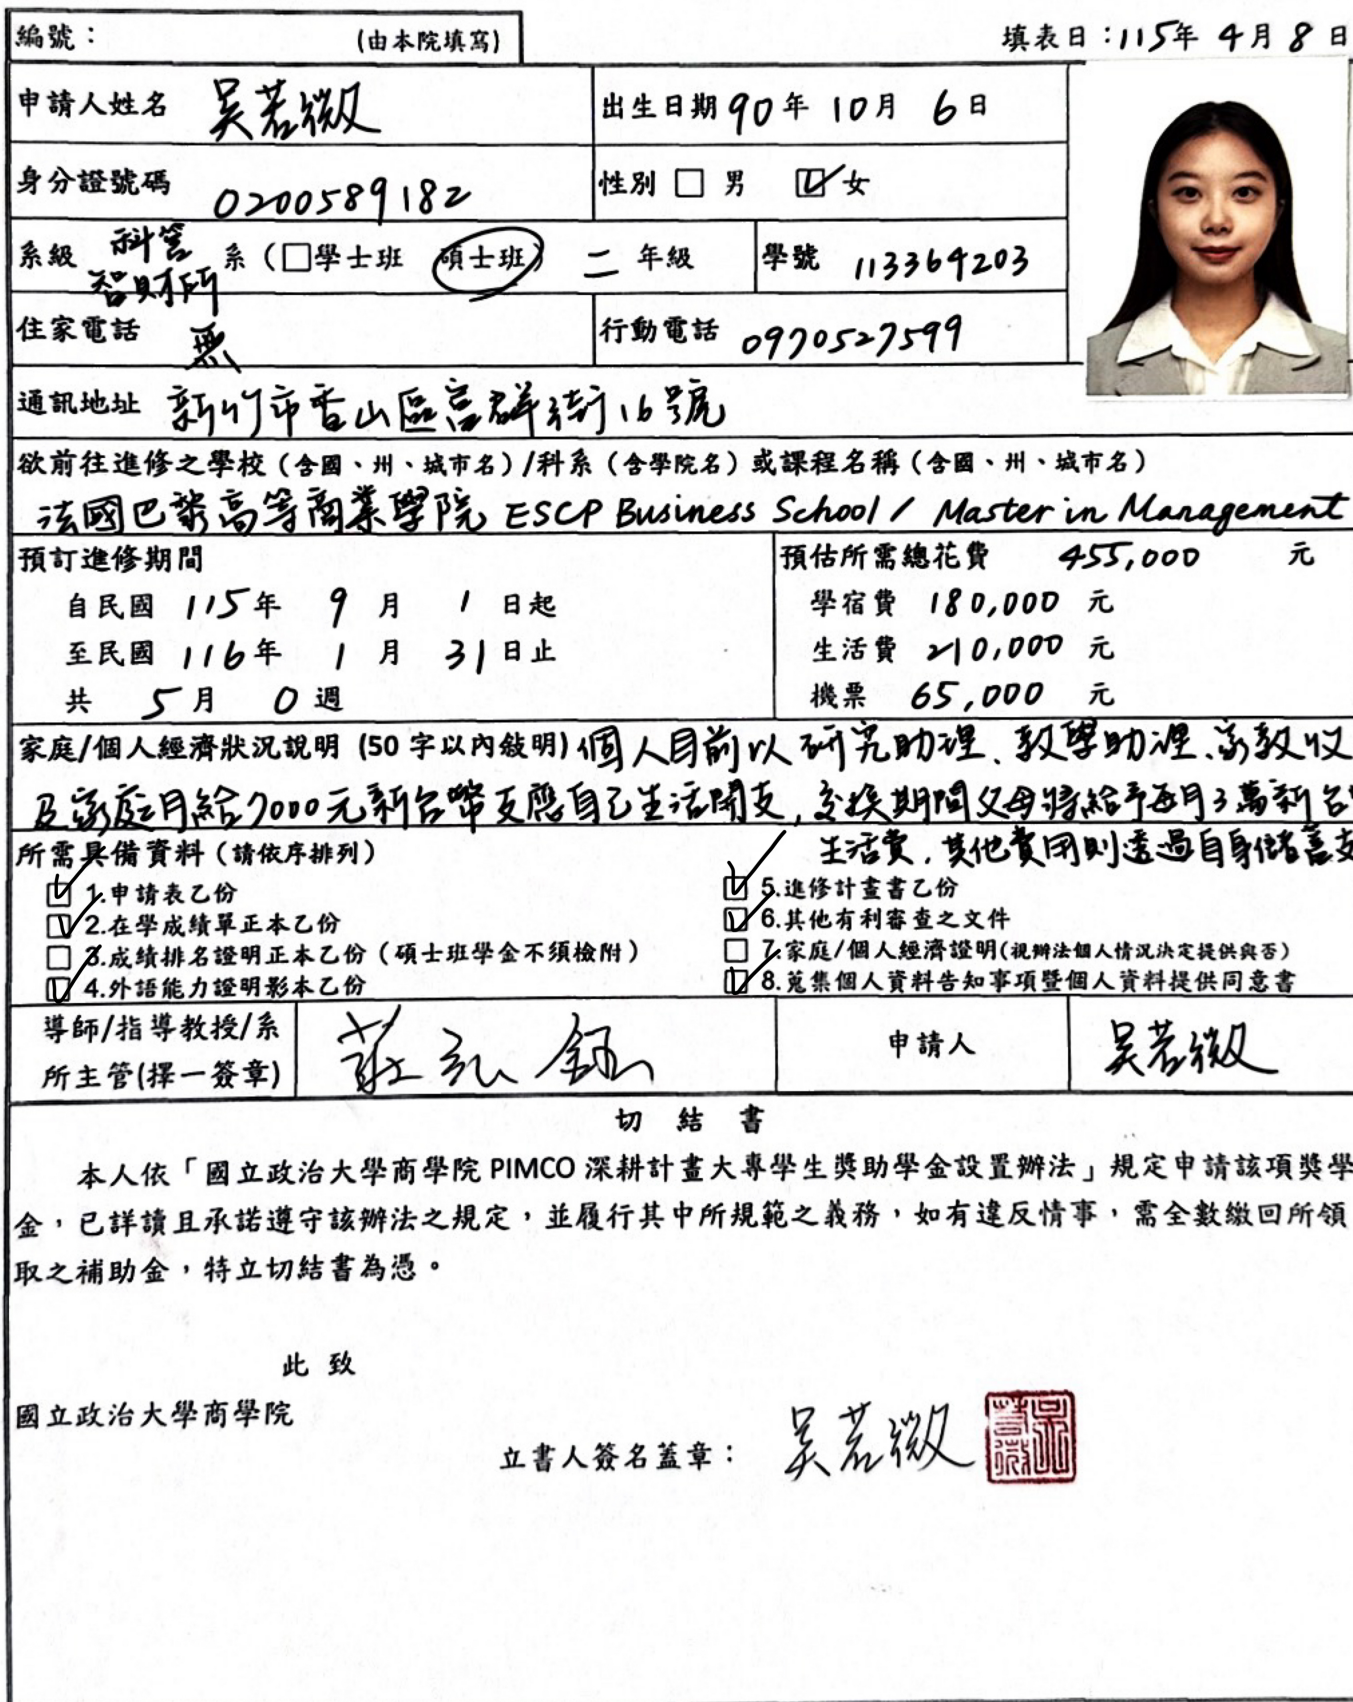 編號： (由本院填寫) 填表日：115年 4月 8日
申請人姓名 吳若微 出生日期 90年 10月 6日
身分證號碼 0200589182 性別 □ 男 ☑ 女
系級 科管智財所 系（□學士班 碩士班） 二 年級 學號 113364203
住家電話 無 行動電話 0970527599
通訊地址 新竹市香山區富群街16號
欲前往進修之學校（含國、州、城市名）/科系（含學院名）或課程名稱（含國、州、城市名）
法國巴黎高等商業學院 ESCP Business School / Master in Management
預訂進修期間 預估所需總花費 455,000 元
自民國 115年 9 月 1 日起 學宿費 180,000 元
至民國 116年 1 月 31日止 生活費 210,000 元
共 5月 0週 機票 65,000 元
家庭/個人經濟狀況說明 (50 字以內敍明) 個人目前以研究助理、教學助理、家教收
及家庭月給7000元新台幣支應自己生活開支，交換期間父母將給予每月3萬新台
生活費，其他費用則透過自身儲蓄支
所需具備資料（請依序排列）
☑ 1.申請表乙份 ☑ 5.進修計畫書乙份
☑ 2.在學成績單正本乙份 ☑ 6.其他有利審查之文件
□ 3.成績排名證明正本乙份（碩士班學金不須檢附） □ 7.家庭/個人經濟證明(視辦法個人情況決定提供與否)
☑ 4.外語能力證明影本乙份 ☑ 8.蒐集個人資料告知事項暨個人資料提供同意書
導師/指導教授/系
所主管(擇一簽章) 莊弘鈺 申請人 吳若微
切 結 書
本人依「國立政治大學商學院 PIMCO 深耕計畫大專學生獎助學金設置辦法」規定申請該項獎學
金，已詳讀且承諾遵守該辦法之規定，並履行其中所規範之義務，如有違反情事，需全數繳回所領
取之補助金，特立切結書為憑。
此 致
國立政治大學商學院
立書人簽名蓋章： 吳若微 吳若微